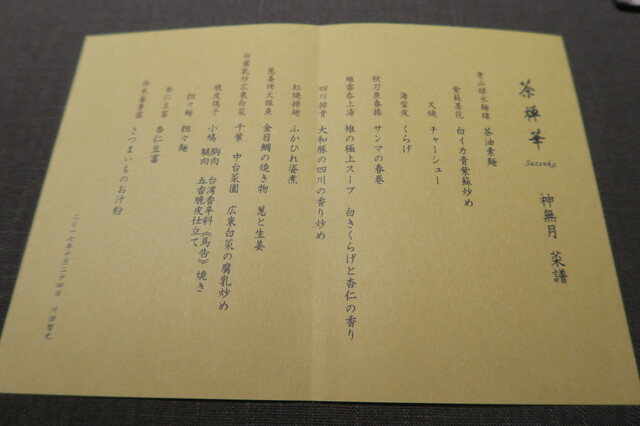 茶禅華
Sazenka
神無月 菜譜
青山緑水麺線 茶油素麺
紫蘇墨花 白イカ青紫蘇炒め
叉焼 チャーシュー
海蜇皮 くらげ
秋刀魚春捲 サンマの春巻
雉雲呑上湯 雉の極上スープ 白きくらげと杏仁の香り
四川排骨 大和豚の四川の香り炒め
紅焼排翅 ふかひれ姿煮
葱姜烤大眼魚 金目鯛の焼き物 葱と生姜
白腐乳炒広東白菜 千葉 中台菜園 広東白菜の腐乳炒め
脆皮鴿子 小鳩 胸肉 台湾香辛料《馬告》焼き
腿肉 五香脆皮仕立て
担々麺 担々麺
杏仁豆富 杏仁豆富
さつまいものお汁粉
二〇一七年十月二十四日 川田智也